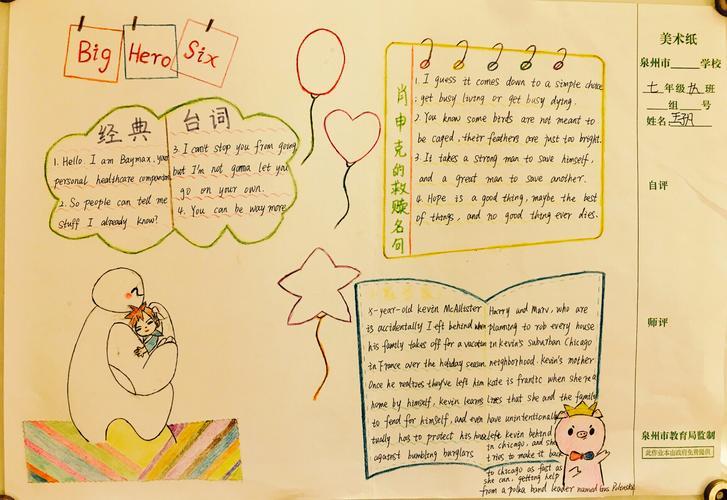 Big
Hero
Six
经典 台词
1. Hello. I am Baymax, your
personal healthcare companion
2. So people can tell me
stuff I already know?
3. I can't stop you from going
but I'm not gonna let you
go on your own.
4. You can be way more
肖申克的救赎名句
1. I guess it comes down to a simple choice
: get busy living or get busy dying.
2. You know some birds are not meant to
be caged, their feathers are just too bright.
3. It takes a strong man to save himself,
and a great man to save another.
4. Hope is a good thing, maybe the best
of things, and no good thing ever dies.
8-year-old kevin McAllister
is accidentally left behind when
his family takes off for a vacation
in France over the holiday season
Once he realizes they've left him
home by himself, kevin learns
to fend for himself, and even
tually has to protect his house
against bumbling burglars
Harry and Marv, who are
planning to rob every house
in kevin's suburban Chicago
neighborhood. kevin's mother
kate is frantic when she rea
lizes that she and the family
have unintentionally
left kevin behind
in chicago, and she
tries to make it back
to Chicago as fast as
she can, getting help
from a polka band leader named Gus Polinski
美术纸
泉州市 学校
七年级 班
组 号
姓名
自评
师评
泉州市教育局监制
此作业本由政府免费提供